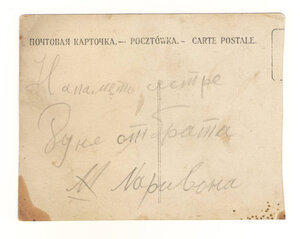 ПОЧТОВАЯ КАРТОЧКА.— POCZTÓWKA.— CARTE POSTALE.
На память сестре
Дуне от брата
М Ларивона